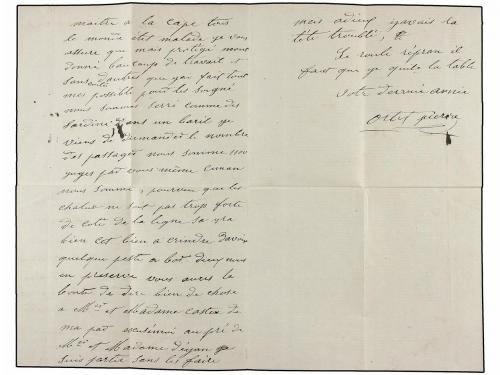 maitre a la cape tous
le monde etét malade je vous
assure que mais protégé mous
donné beaucoup de travait et
sans d'autres que jai fait tout
mes possible pour les soigné
nous sommes serré comme des
Sardine dans un baril je
viens de demandé le nombre
des passagé nous somme
nous même
nous somme, pourveu que les
chaleur ne soit pas trop forte
de coté de la ligne sa yra
bien cet bien a crindre d'avoir
quelque peste a bor dieux nous
en preserve vous aurez la
bonté de dire bien de chose
a Mr et Madame castex de
ma par au pré de
Mr et Madame
suis partie sans les faire
mes adieux javais la
tete troublé,
Le roule il
faut que je quite la table
Votre
ortet pierre